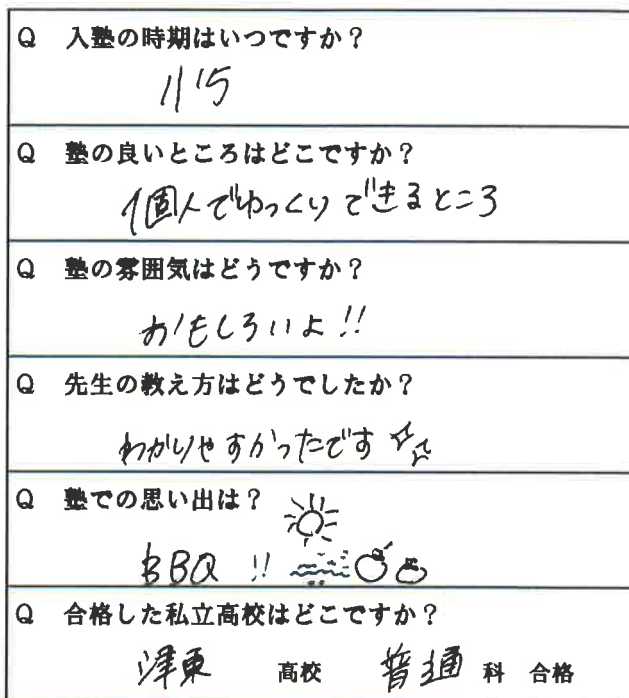 Q 入塾の時期はいつですか？
小5
Q 塾の良いところはどこですか？
個人でゆっくりできるところ
Q 塾の雰囲気はどうですか？
おもしろいよ!!
Q 先生の教え方はどうでしたか？
わかりやすかったです☆☆
Q 塾での思い出は？
BBQ !!
Q 合格した私立高校はどこですか？
津東 高校 普通 科 合格